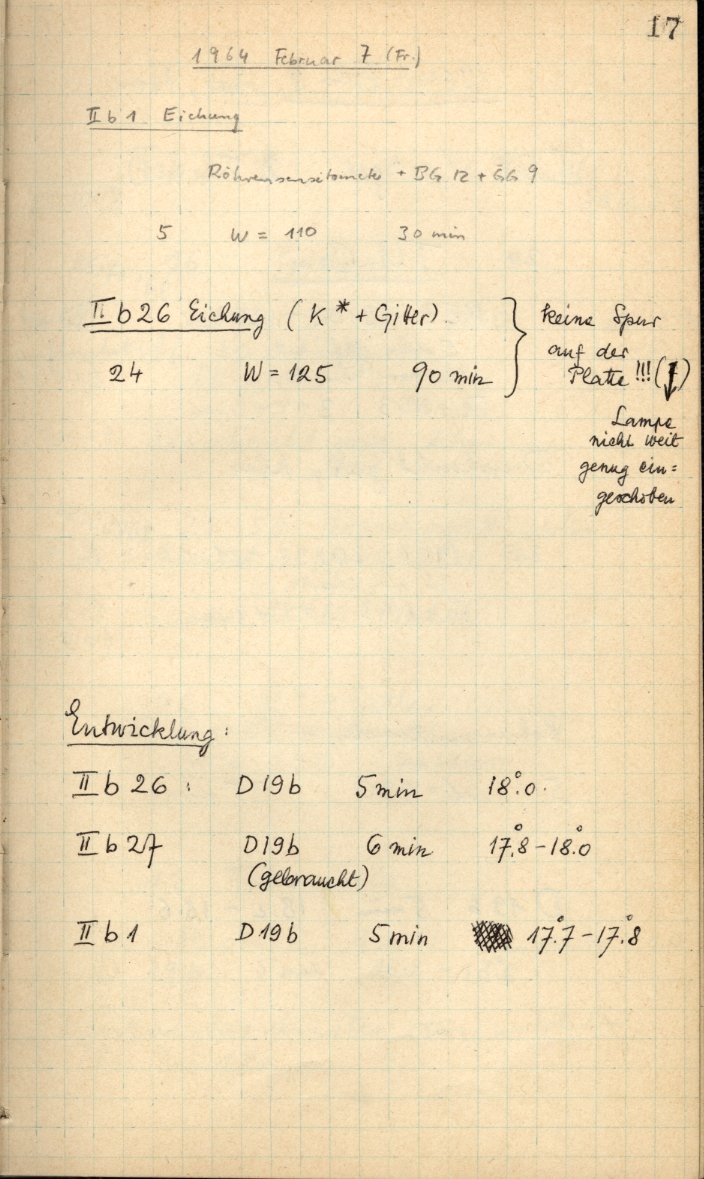 17
1964 Februar 7 (Fr.)
II b 1 Eichung
Röhrensensitometer + BG 12 + GG 9
5 W = 110 30 min
II b 26 Eichung (K* + Gitter)
24 W = 125 90 min
keine Spur
auf der
Platte !!! (
)
Lampe
nicht weit
genug ein=
geschoben
Entwicklung:
II b 26 : D19b 5 min 18°.0
II b 27 D19b 6 min 17°.8 - 18°.0
(gebraucht)
II b 1 D19b 5 min 17°.7 - 17°.8